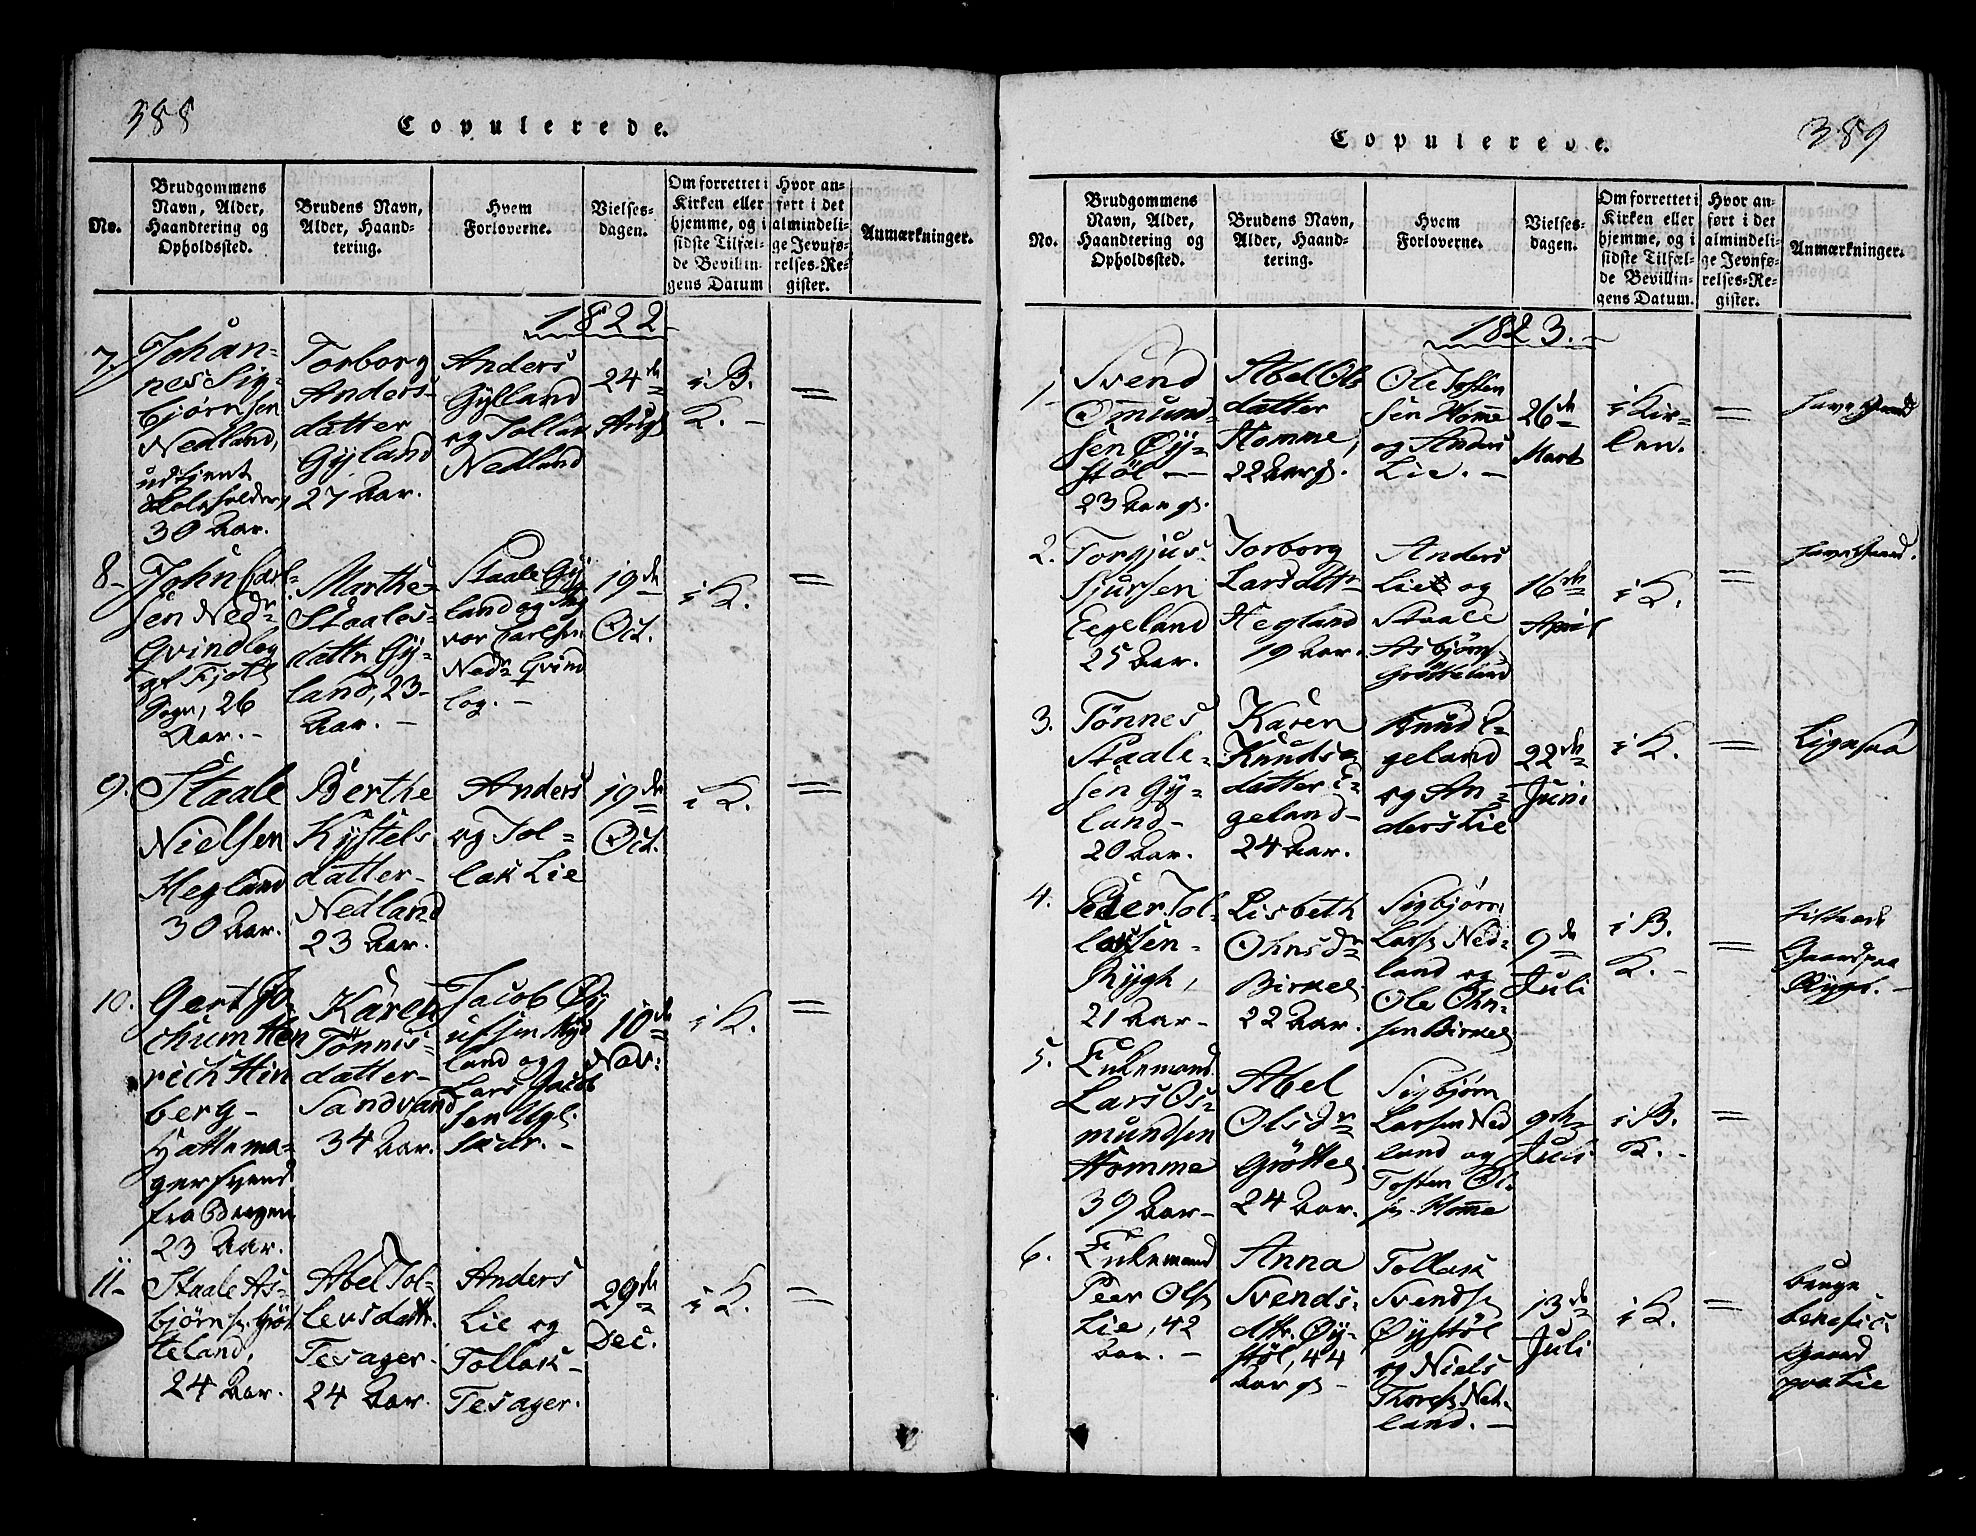 388
Copulerede.
No.
Brudgommens
Navn, Alder,
Haandtering og
Opholdssted.
Brudens Navn,
Alder, Haand-
tering.
Hvem
Forloverne.
Vielses-
dagen.
Om forrettet i
Kirken eller
hjemme, og i
sidste Tilfæl-
de Bevillin-
gens Datum
Hvor an-
ført i det
almindeli-
ge Jevnfø-
relses-Re-
gister.
Anmærkninger.
1822
7.
Johan-
nes Sig-
bjørnsen
Nedland,
udtjent
30 Aar.
Torborg
Anders-
datter
Gyland
27 Aar.
Anders
Gylland
og Tollak
Nedland
24de
Aug
i B.
K. -
=
8-
John Carl-
sen Nedr
Qvindlog
af Fjotl
Sogn, 26
Aar. -
Marthe
Staales-
dattr Gy-
land, 23-
Aar. -
Staale Gy-
land og
vor Carlsen
Nedr Qvind
log. -
19de
Oct.
i K.
=
9.
Staale
Nielsen
Hegland
30 Aar.
Berthe
Kjstels
datter-
Nedland
23 Aar.
Anders
og Tol=
lak Lie
19de
Oct.
i K.
=
10.
Gert Jo
chum Hen
rich Hin
berg-
Hattema-
gersvend
fra Bergen
23 Aar.
Karen
Tønnis-
datter-
Sandvand
34 Aar.
Jacob Øy
ufsen
land og
Lars Jacob
sen
10de
Nov:
i K.
=
11-
Staale As-
bjørns. Grøt
teland,
24 Aar.
Abel Tol-
levsdattr.
Tesager-
24 Aar.
Anders
Lie og
Tollak-
Tesager.
29de
Dec.
i K.
=
389
Copulerede.
No.
Brudgommens
Navn, Alder,
Haandtering og
Opholdssted.
Brudens Navn,
Alder, Haand-
tering.
Hvem
Forloverne.
Vielses-
dagen.
Om forrettet i
Kirken eller
hjemme, og i
sidste Tilfæl-
de Bevillin-
gens Datum.
Hvor an-
ført i det
almindeli-
ge Jevnfø-
relses-Re-
gister.
Anmærkninger.
1823.-
1.
Svend
Omund-
sen Øy-
støl -
23 Aar gl.
Abel Ols
datter
Homme,
22 Aar gl.
Ole Tosten
sen Home
og Anders
Lie. -
26de
Marts
i Kir-
ken.
=
2.
Torgjus
Sjursen
Eegeland
25 Aar.
Torborg
Larsdtr-
Hegland
19 Aar.
Anders
Lie og
Staale
Asbjørns
Grøtteland
16de
April
i K.
=
3.
Tønnes
Staale-
sen Gy-
land-
20 Aar.
Karen
Knuds
datter E-
geland-
24 Aar.
Knud E-
geland
og An-
ders Lie
22de
Juni
i K.
=
Ligesaa
4.
Peder Tol-
laksen-
Rygh,
21 Aar-
Lisbeth
Ohnsdr
Birkel.
22 Aar.
Sigbjørn
Lars. Ned-
land og
Ole Ohn-
sen Birkel
9de
Juli
i B.
K. -
=
Gaard paa
Rygh. -
5.
Enkemand
Lars Os-
mundsen
Homme
39 Aar-
Abel
Olsdr
Grøttel.
24 Aar.
Sigbjørn
Larsen Ned
land og
Tosten Ol-
s. Home
9de
Juli
i B.
K. -
=
6.
Enkemand
Peer Ols.
Lie, 42
Aar. -
Anna
Svends-
dtr. Øy-
støl, 44
Aar gl -
Tollak
Svends.
Øystøl
og Niels
Thores. Ned-
land. -
13de
Juli
i K.
=
bruge
benefic.
Gaard
paa Lie